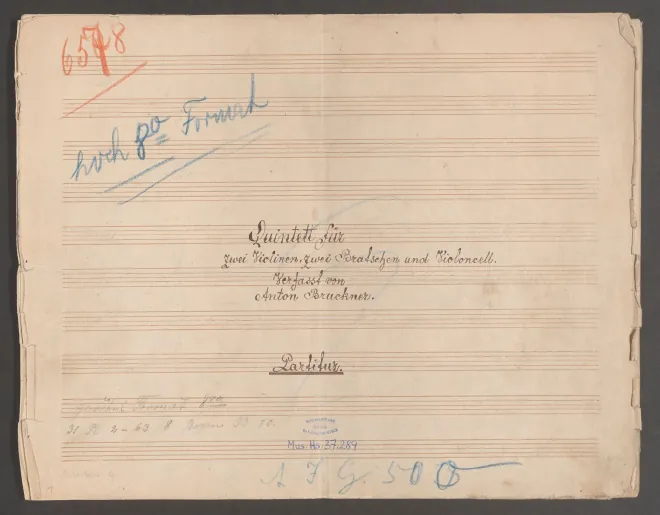 6548
hoch 8o Format
Quintett für
zwei Violinen, zwei Bratschen und Violoncell.
Verfasst von
Anton Bruckner.
Partitur.
Format 8vo
Mus. Hs. 37.289
A J G. 500